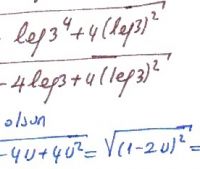 log3⁴ + 4(log3)²
- 4log3 + 4(log3)²
olsun
- 4u + 4u² = √(1 - 2u)² =